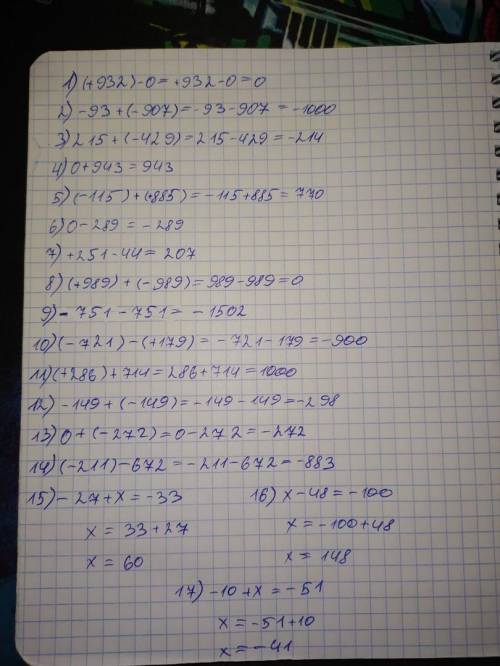 1) (+932)-0=+932-0=0
2) -93+(-907)=-93-907=-1000
3) 215+(-429)=215-429=-214
4) 0+943=943
5) (-115)+(+885)=-115+885=770
6) 0-289=-289
7) +251-44=207
8) (+989)+(-989)=989-989=0
9) -751-751=-1502
10) (-721)-(+179)=-721-179=-900
11) (+286)+714=286+714=1000
12) -149+(-149)=-149-149=-298
13) 0+(-272)=0-272=-272
14) (-211)-672=-211-672=-883
15) -27+x=-33 16) x-48=-100
x=33+27 x=-100+48
x=60 x=148
17) -10+x=-51
x=-51+10
x=-41